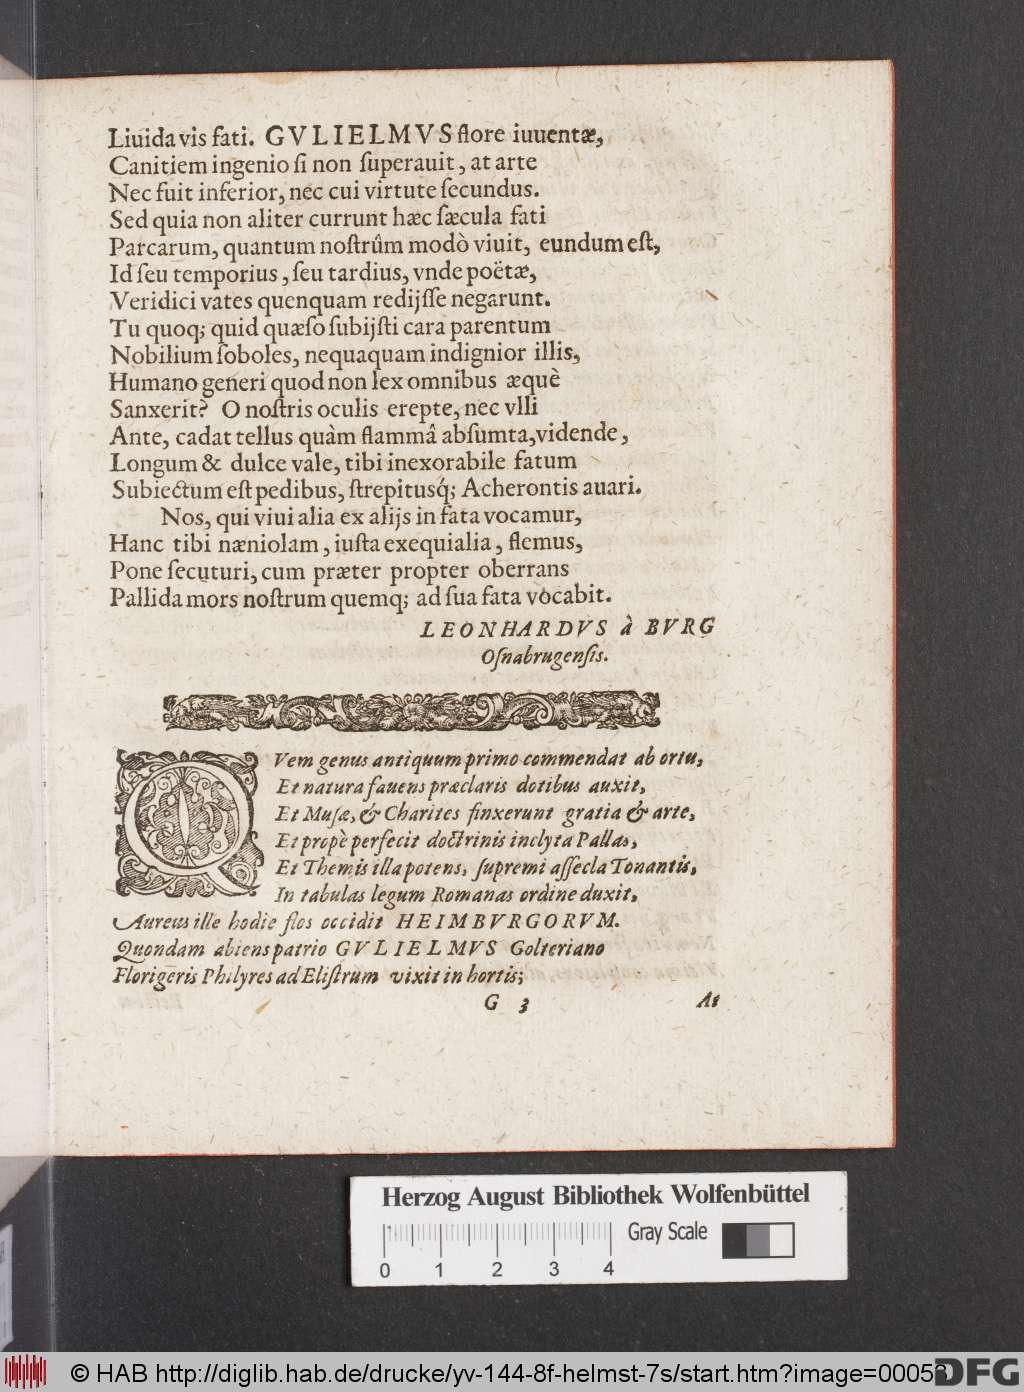 Liuida vis fati. GVLIELMVS flore iuuentæ,
Canitiem ingenio ſi non ſuperauit, at arte
Nec fuit inferior, nec cui virtute ſecundus.
Sed quia non aliter currunt hæc ſæcula fati
Parcarum, quantum noſtrûm modò viuit, eundum eſt,
Id ſeu temporius, ſeu tardius, vnde poëtæ,
Veridici vates quenquam redijſſe negarunt.
Tu quoq; quid quæſo ſubijſti cara parentum
Nobilium ſoboles, nequaquam indignior illis,
Humano generi quod non lex omnibus æquè
Sanxerit? O noſtris oculis erepte, nec vlli
Ante, cadat tellus quàm flammâ abſumta, vidende,
Longum & dulce vale, tibi inexorabile fatum
Subiectum eſt pedibus, ſtrepitusq́; Acherontis auari.
Nos, qui viui alia ex alijs in fata vocamur,
Hanc tibi næniolam, iuſta exequialia, flemus,
Pone ſecuturi, cum præter propter oberrans
Pallida mors noſtrum quemq; ad ſua fata vocabit.
LEONHARDVS à BVRG
Oſnabrugenſis.
QVem genus antiquum primo commendat ab ortu,
Et natura fauens præclaris dotibus auxit,
Et Muſæ, & Charites finxerunt gratia & arte,
Et propè perfecit doctrinis inclyta Pallas,
Et Themis illa potens, ſupremi aſſecla Tonantis,
In tabulas legum Romanas ordine duxit,
Aureus ille hodie flos occidit HEIMBVRGORVM.
Quondam abiens patrio GVLIELMVS Golteriano
Florigeris Philyres ad Eliſtrum vixit in hortis;
G 3 At
Herzog August Bibliothek Wolfenbüttel
Gray Scale
0 1 2 3 4
© HAB http://diglib.hab.de/drucke/yv-144-8f-helmst-7s/start.htm?image=00053
DFG